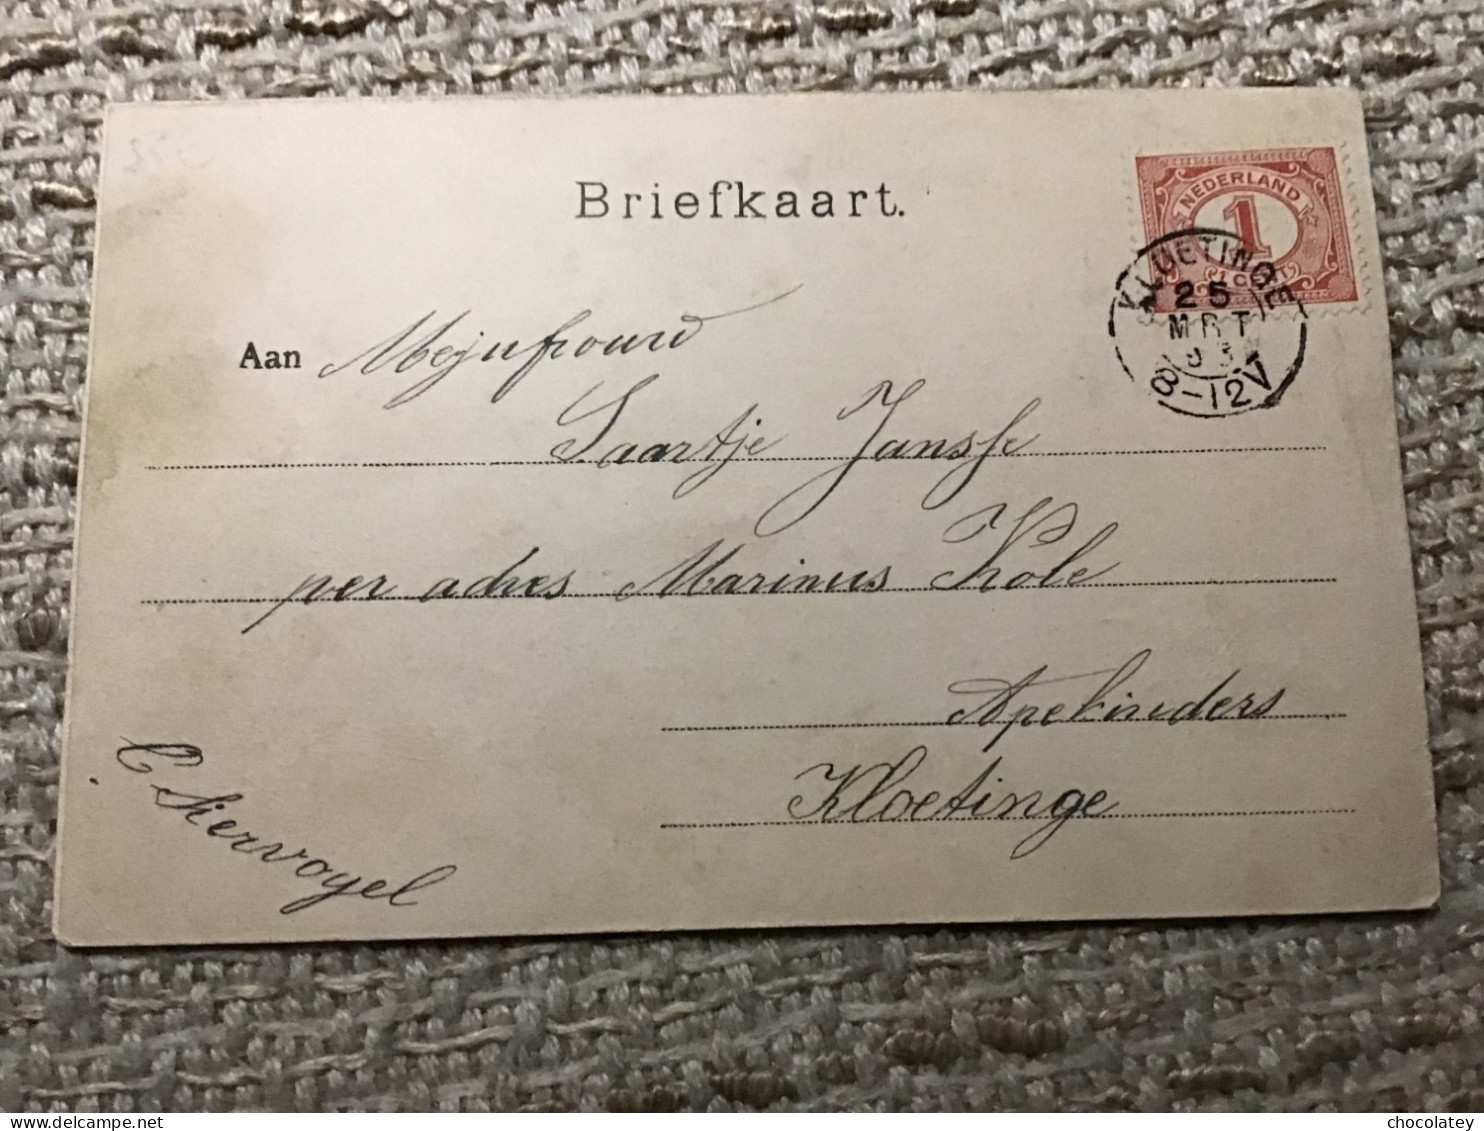 Briefkaart.
NEDERLAND
1
1 CENT
KLOETINGE
25
MRT
8-12V
Aan Mejufrouw
Saartje Jansse
per adres Marinus Kole
Apekinders
Kloetinge
C. Siervogel
chocolatey